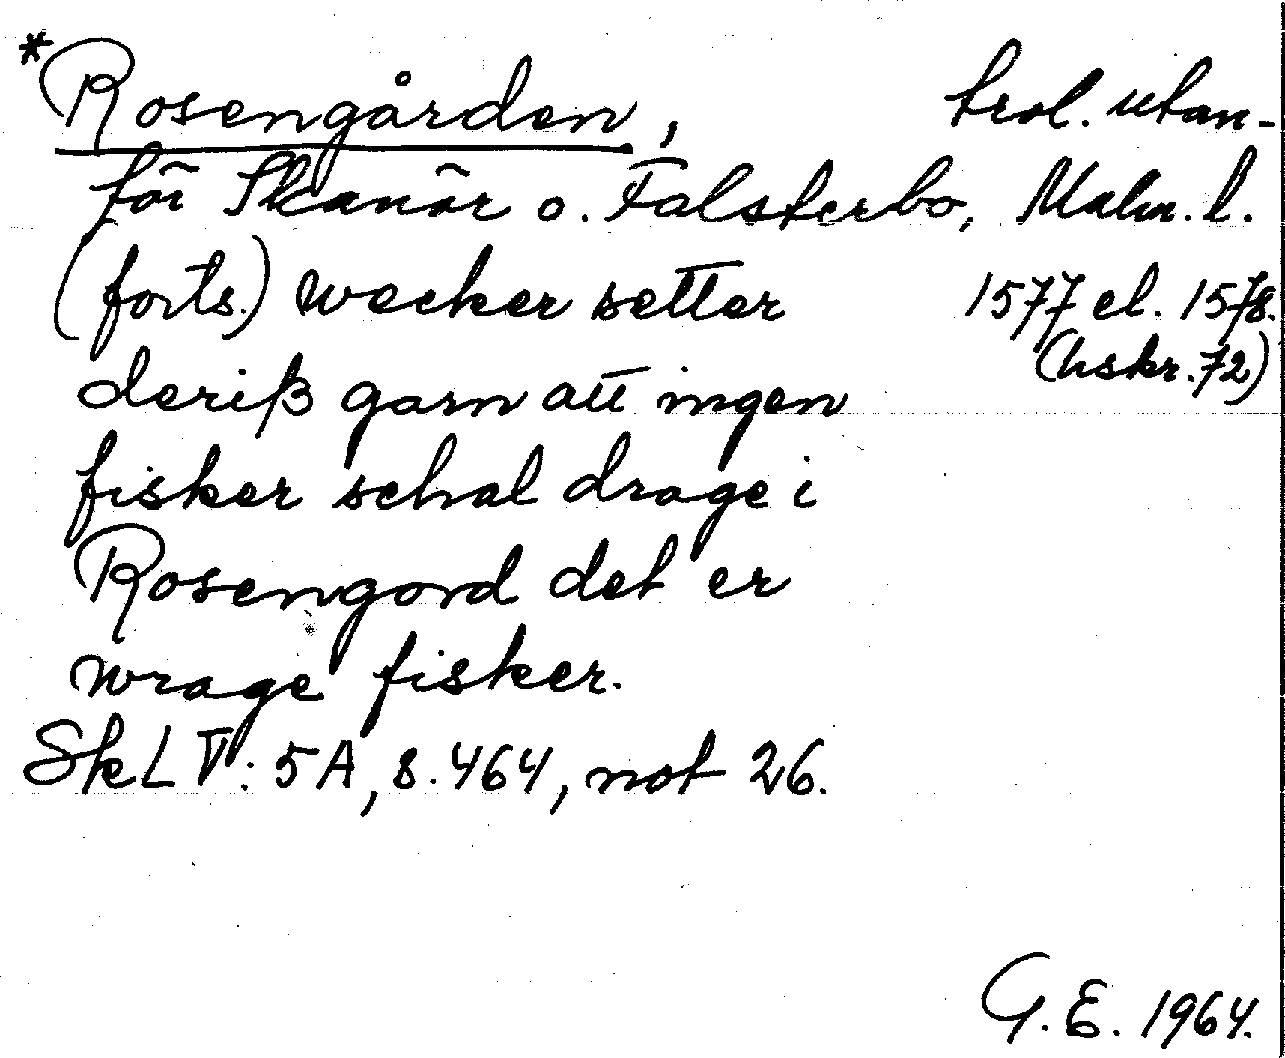 *Rosengården, trol. utan-
för Skanör o. Falsterbo, Malm. l.
(forts.) wecker setter 1577 el. 1578.
(hskr. 72)
deriß garn att ingen
fisker schal drage i
Rosengord det er
wrage fisker.
SkL V: 5A, s. 464, not 26.
G. E. 1964.